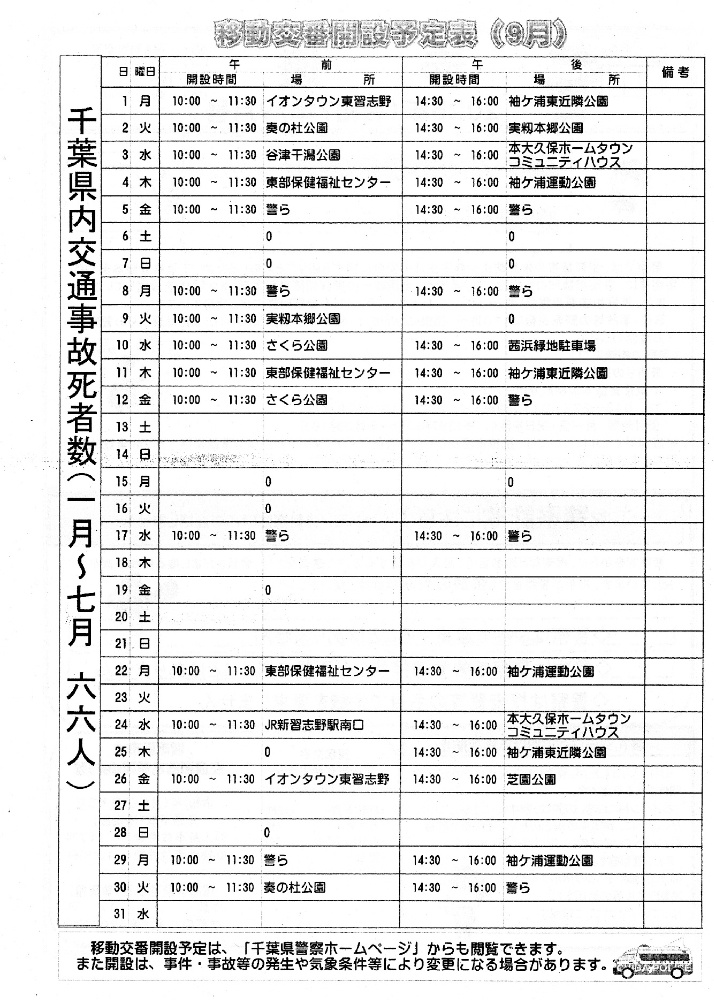 移動交番開設予定表（9月）
千葉県内交通事故死者数（一月～七月 六六人）
日 曜日 午 前 午 後 備考
開設時間 場 所 開設時間 場 所
1 月 10:00 ～ 11:30 イオンタウン東習志野 14:30 ～ 16:00 袖ケ浦東近隣公園
2 火 10:00 ～ 11:30 奏の杜公園 14:30 ～ 16:00 実籾本郷公園
3 水 10:00 ～ 11:30 谷津干潟公園 14:30 ～ 16:00 本大久保ホームタウン
コミュニティハウス
4 木 10:00 ～ 11:30 東部保健福祉センター 14:30 ～ 16:00 袖ケ浦運動公園
5 金 10:00 ～ 11:30 警ら 14:30 ～ 16:00 警ら
6 土 0 0
7 日 0 0
8 月 10:00 ～ 11:30 警ら 14:30 ～ 16:00 警ら
9 火 10:00 ～ 11:30 実籾本郷公園 0
10 水 10:00 ～ 11:30 さくら公園 14:30 ～ 16:00 茜浜緑地駐車場
11 木 10:00 ～ 11:30 東部保健福祉センター 14:30 ～ 16:00 袖ケ浦東近隣公園
12 金 10:00 ～ 11:30 さくら公園 14:30 ～ 16:00 警ら
13 土
14 日
15 月 0 0
16 火 0
17 水 10:00 ～ 11:30 警ら 14:30 ～ 16:00 警ら
18 木
19 金 0
20 土
21 日
22 月 10:00 ～ 11:30 東部保健福祉センター 14:30 ～ 16:00 袖ケ浦運動公園
23 火
24 水 10:00 ～ 11:30 JR新習志野駅南口 14:30 ～ 16:00 本大久保ホームタウン
コミュニティハウス
25 木 0 14:30 ～ 16:00 袖ケ浦東近隣公園
26 金 10:00 ～ 11:30 イオンタウン東習志野 14:30 ～ 16:00 芝園公園
27 土
28 日 0
29 月 10:00 ～ 11:30 警ら 14:30 ～ 16:00 袖ケ浦運動公園
30 火 10:00 ～ 11:30 奏の杜公園 14:30 ～ 16:00 警ら
31 水
移動交番開設予定は、「千葉県警察ホームページ」からも閲覧できます。
また開設は、事件・事故等の発生や気象条件等により変更になる場合があります。